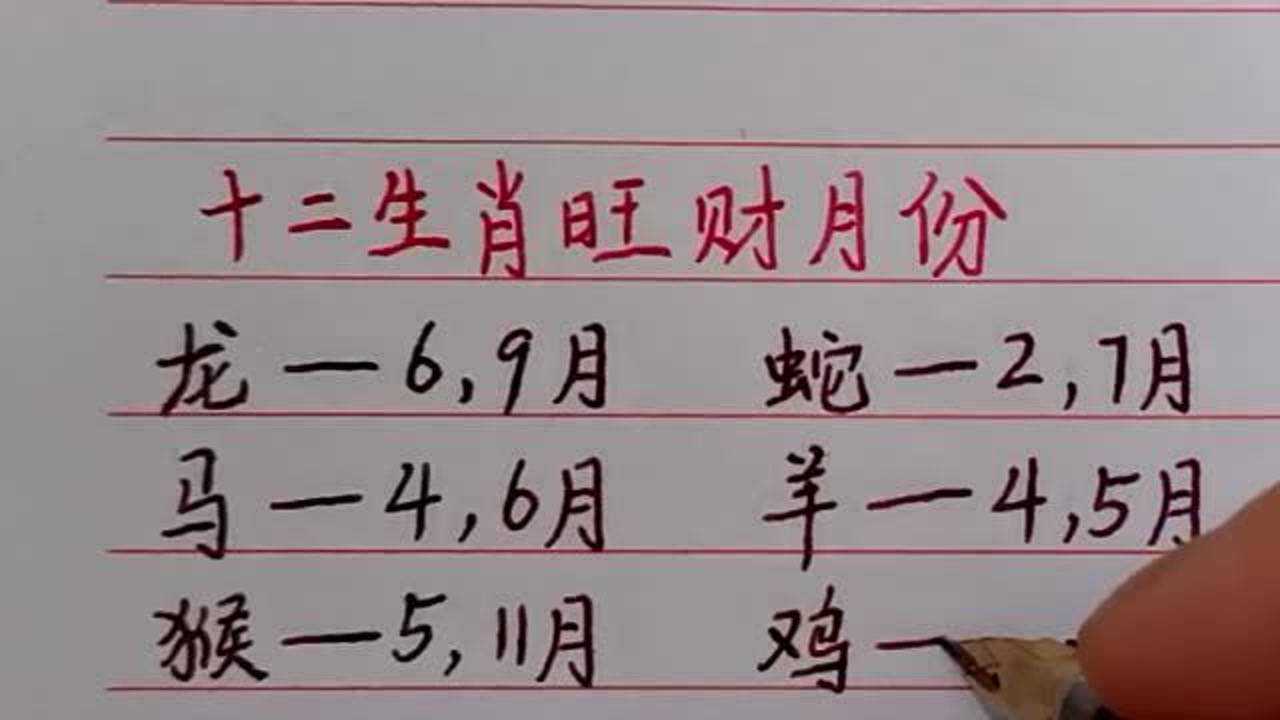 十二生肖旺财月份
龙—6,9月 蛇—2,7月
马—4,6月 羊—4,5月
猴—5,11月 鸡—